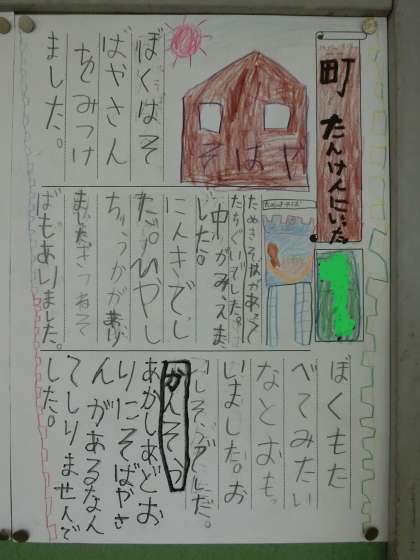 町 たんけんにいった
そはや
ぼくはそ
ばやさん
をみつけ
ました。
たぬきそばがあって
たちぐいでした。
中がみえま
した。
にんきでし
た。ひやし
ちゅうかがあり
ました。きつねそ
ばもありました。
ぼくもた
べてみたい
なとおもっ
いました。お
いしそうでした。
かんそう
あかしあどお
りにそばやさ
んがあるなん
てしりませんで
した。